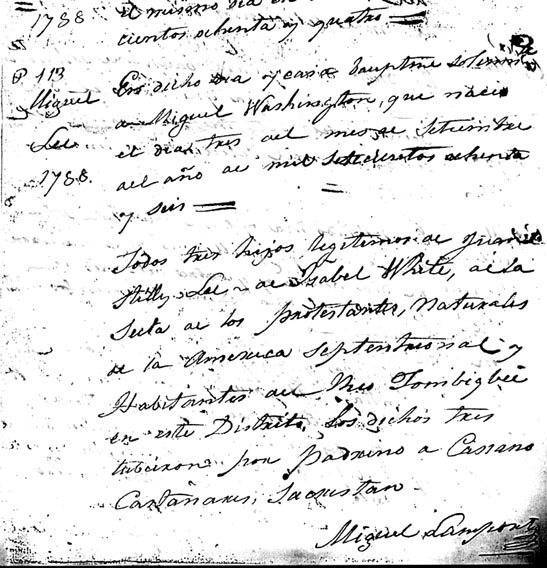 el mismo dia
1788
cientos ochenta y quatro =
P 113
En dicho dia y casa bauptise solemn
Miguel
a Miguel Washington, que nacio
Lee.
el dia tres del mes de Setiembre
1788.
del año de mil setecientos ochenta
y seis =
Todos tres hijos legitimos de
Lee de Izabel White, de la
Secta de los protestantes, Naturales
de la America Septentrional y
Habitantes del Rio Tombigbee
en este Distrito Los dichos tres
tubieron por padrino a
Castañares, Sacristan
Miguel Lamport